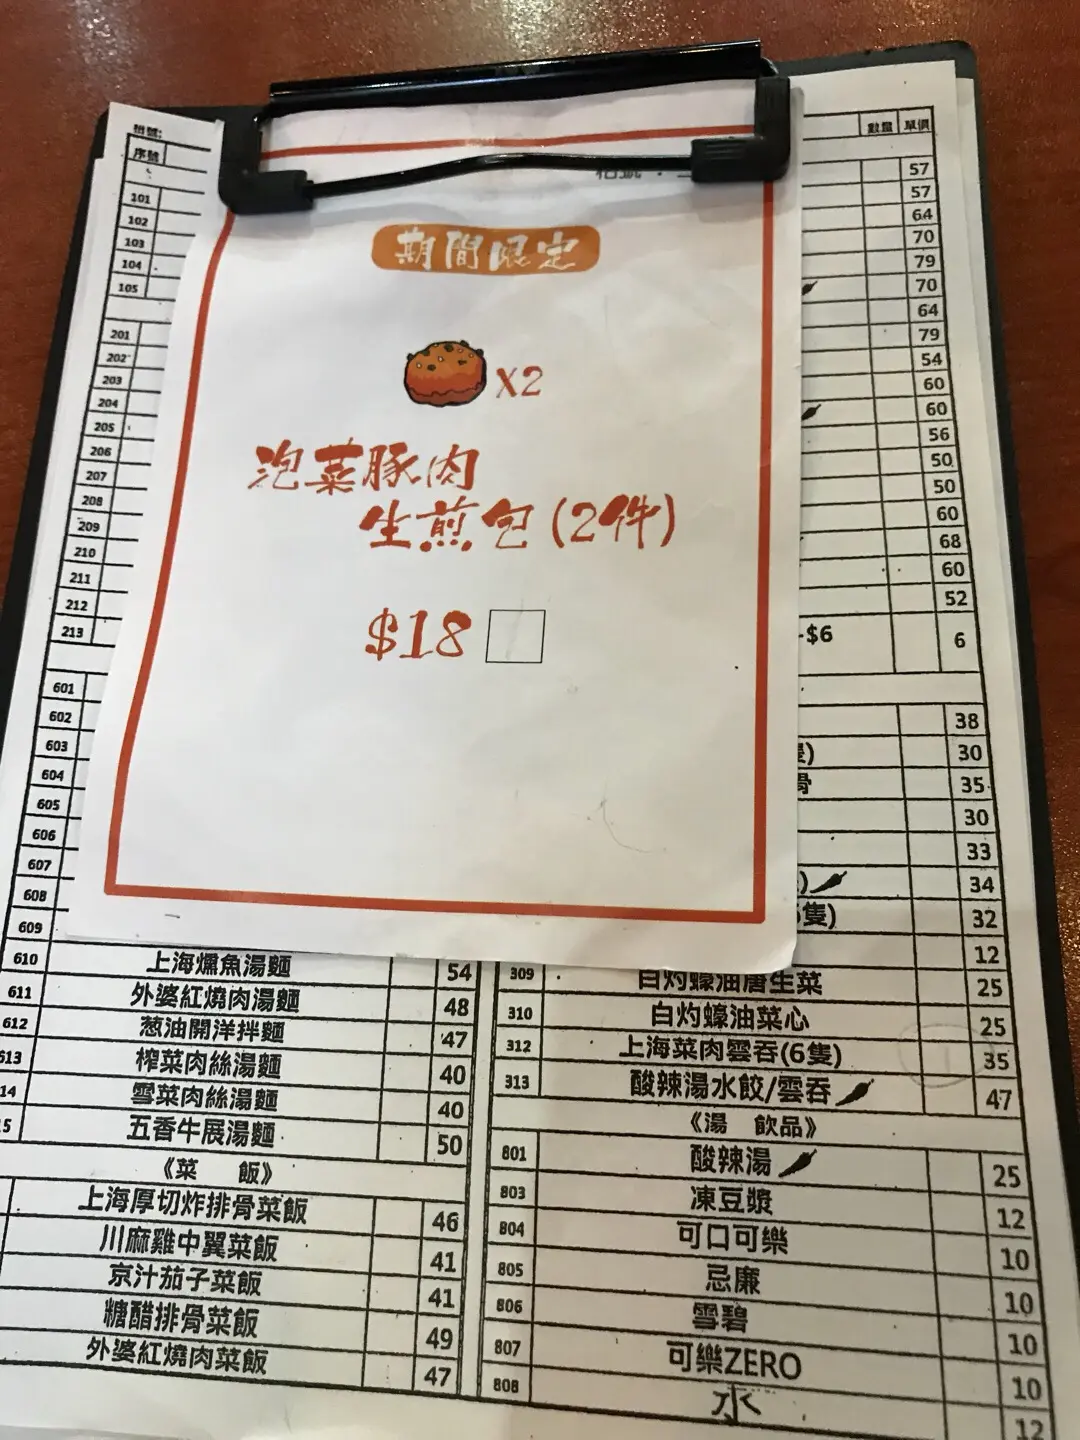 枱號:
序號
數量 單價
期間限定
X2
泡菜豚肉
生煎包(2件)
$18
101
102
103
104
105
201
202
203
204
205
206
207
208
209
210
211
212
213
601
602
603
604
605
606
607
608
609
610 上海燻魚湯麵 54
611 外婆紅燒肉湯麵 48
612 葱油開洋拌麵 47
613 榨菜肉絲湯麵 40
14 雪菜肉絲湯麵 40
5 五香牛展湯麵 50
《菜 飯》
上海厚切炸排骨菜飯 46
川麻雞中翼菜飯 41
京汁茄子菜飯 41
糖醋排骨菜飯 49
外婆紅燒肉菜飯 47
57
57
64
70
79
70
64
79
54
60
60
56
50
50
60
68
60
52
-$6 6
38
30
骨 35
30
33
) 34
隻) 32
12
309 白灼蠔油唐生菜 25
310 白灼蠔油菜心 25
312 上海菜肉雲吞(6隻) 35
313 酸辣湯水餃/雲吞 47
《湯 飲品》
801 酸辣湯 25
803 凍豆漿 12
804 可口可樂 10
805 忌廉 10
806 雪碧 10
807 可樂ZERO 10
808 水 12